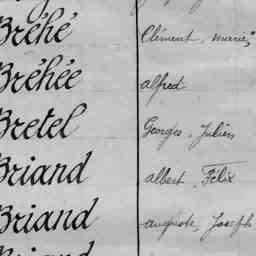 Bréhé Clément, marie,
Bréhée alfred
Bretel Georges, Julien
Briand albert, Félix
Briand auguste, Joseph